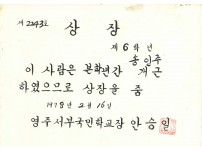 제2243호
상장
제6학년
송인주
이 사람은 본학년간 개근
하였으므로 상장을 줌
1978년 2월 16일
영주서부국민학교장 안승일